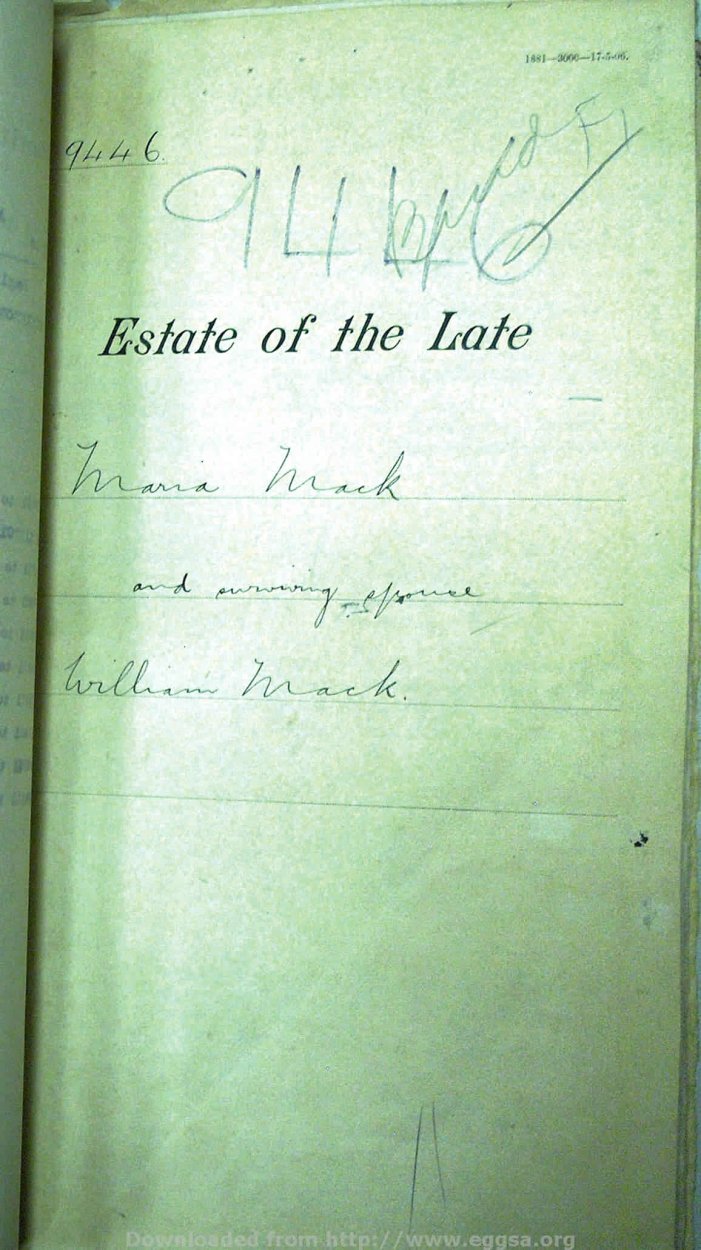 1881—3000—17-5-06.
9446.
9446
Estate of the Late
Maria Mack
and surviving spouse
William Mack.
Downloaded from http://www.eggsa.org